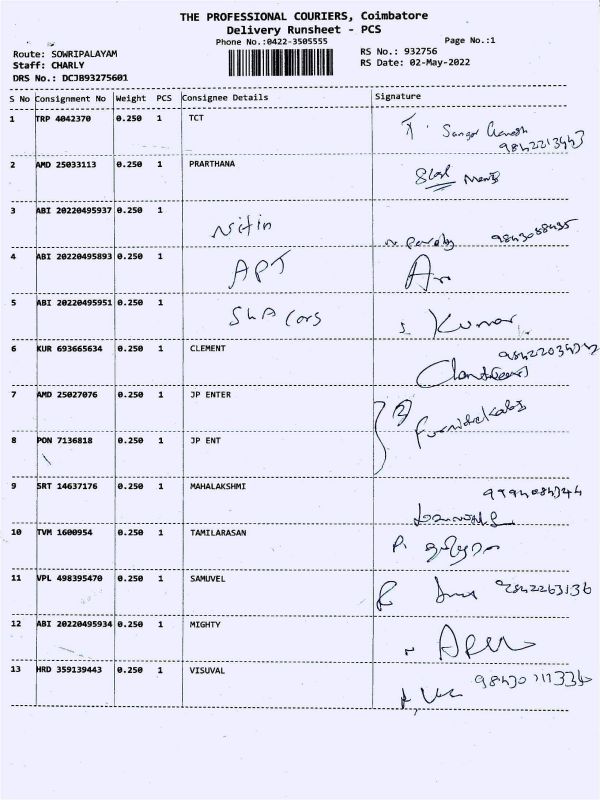 THE PROFESSIONAL COURIERS, Coimbatore
Delivery Runsheet - PCS
Phone No.:0422-3505555
Page No.:1
Route: SOWRIPALAYAM
RS No.: 932756
Staff: CHARLY
RS Date: 02-May-2022
DRS No.: DCJB93275601
S No Consignment No Weight PCS Consignee Details Signature
1 TRP 4042370 0.250 1 TCT
9842213443
2 AMD 25033113 0.250 1 PRARTHANA
3 ABI 20220495937 0.250 1
Nitin
4 ABI 20220495893 0.250 1
APT
5 ABI 20220495951 0.250 1
SKA Cors
Kumar
6 KUR 693665634 0.250 1 CLEMENT
7 AMD 25027076 0.250 1 JP ENTER
(2)
8 PON 7136818 0.250 1 JP ENT
9 SRT 14637176 0.250 1 MAHALAKSHMI
10 TVM 1600954 0.250 1 TAMILARASAN
11 VPL 498395470 0.250 1 SAMUVEL
9842263136
12 ABI 20220495934 0.250 1 MIGHTY
13 HRD 359139443 0.250 1 VISUVAL